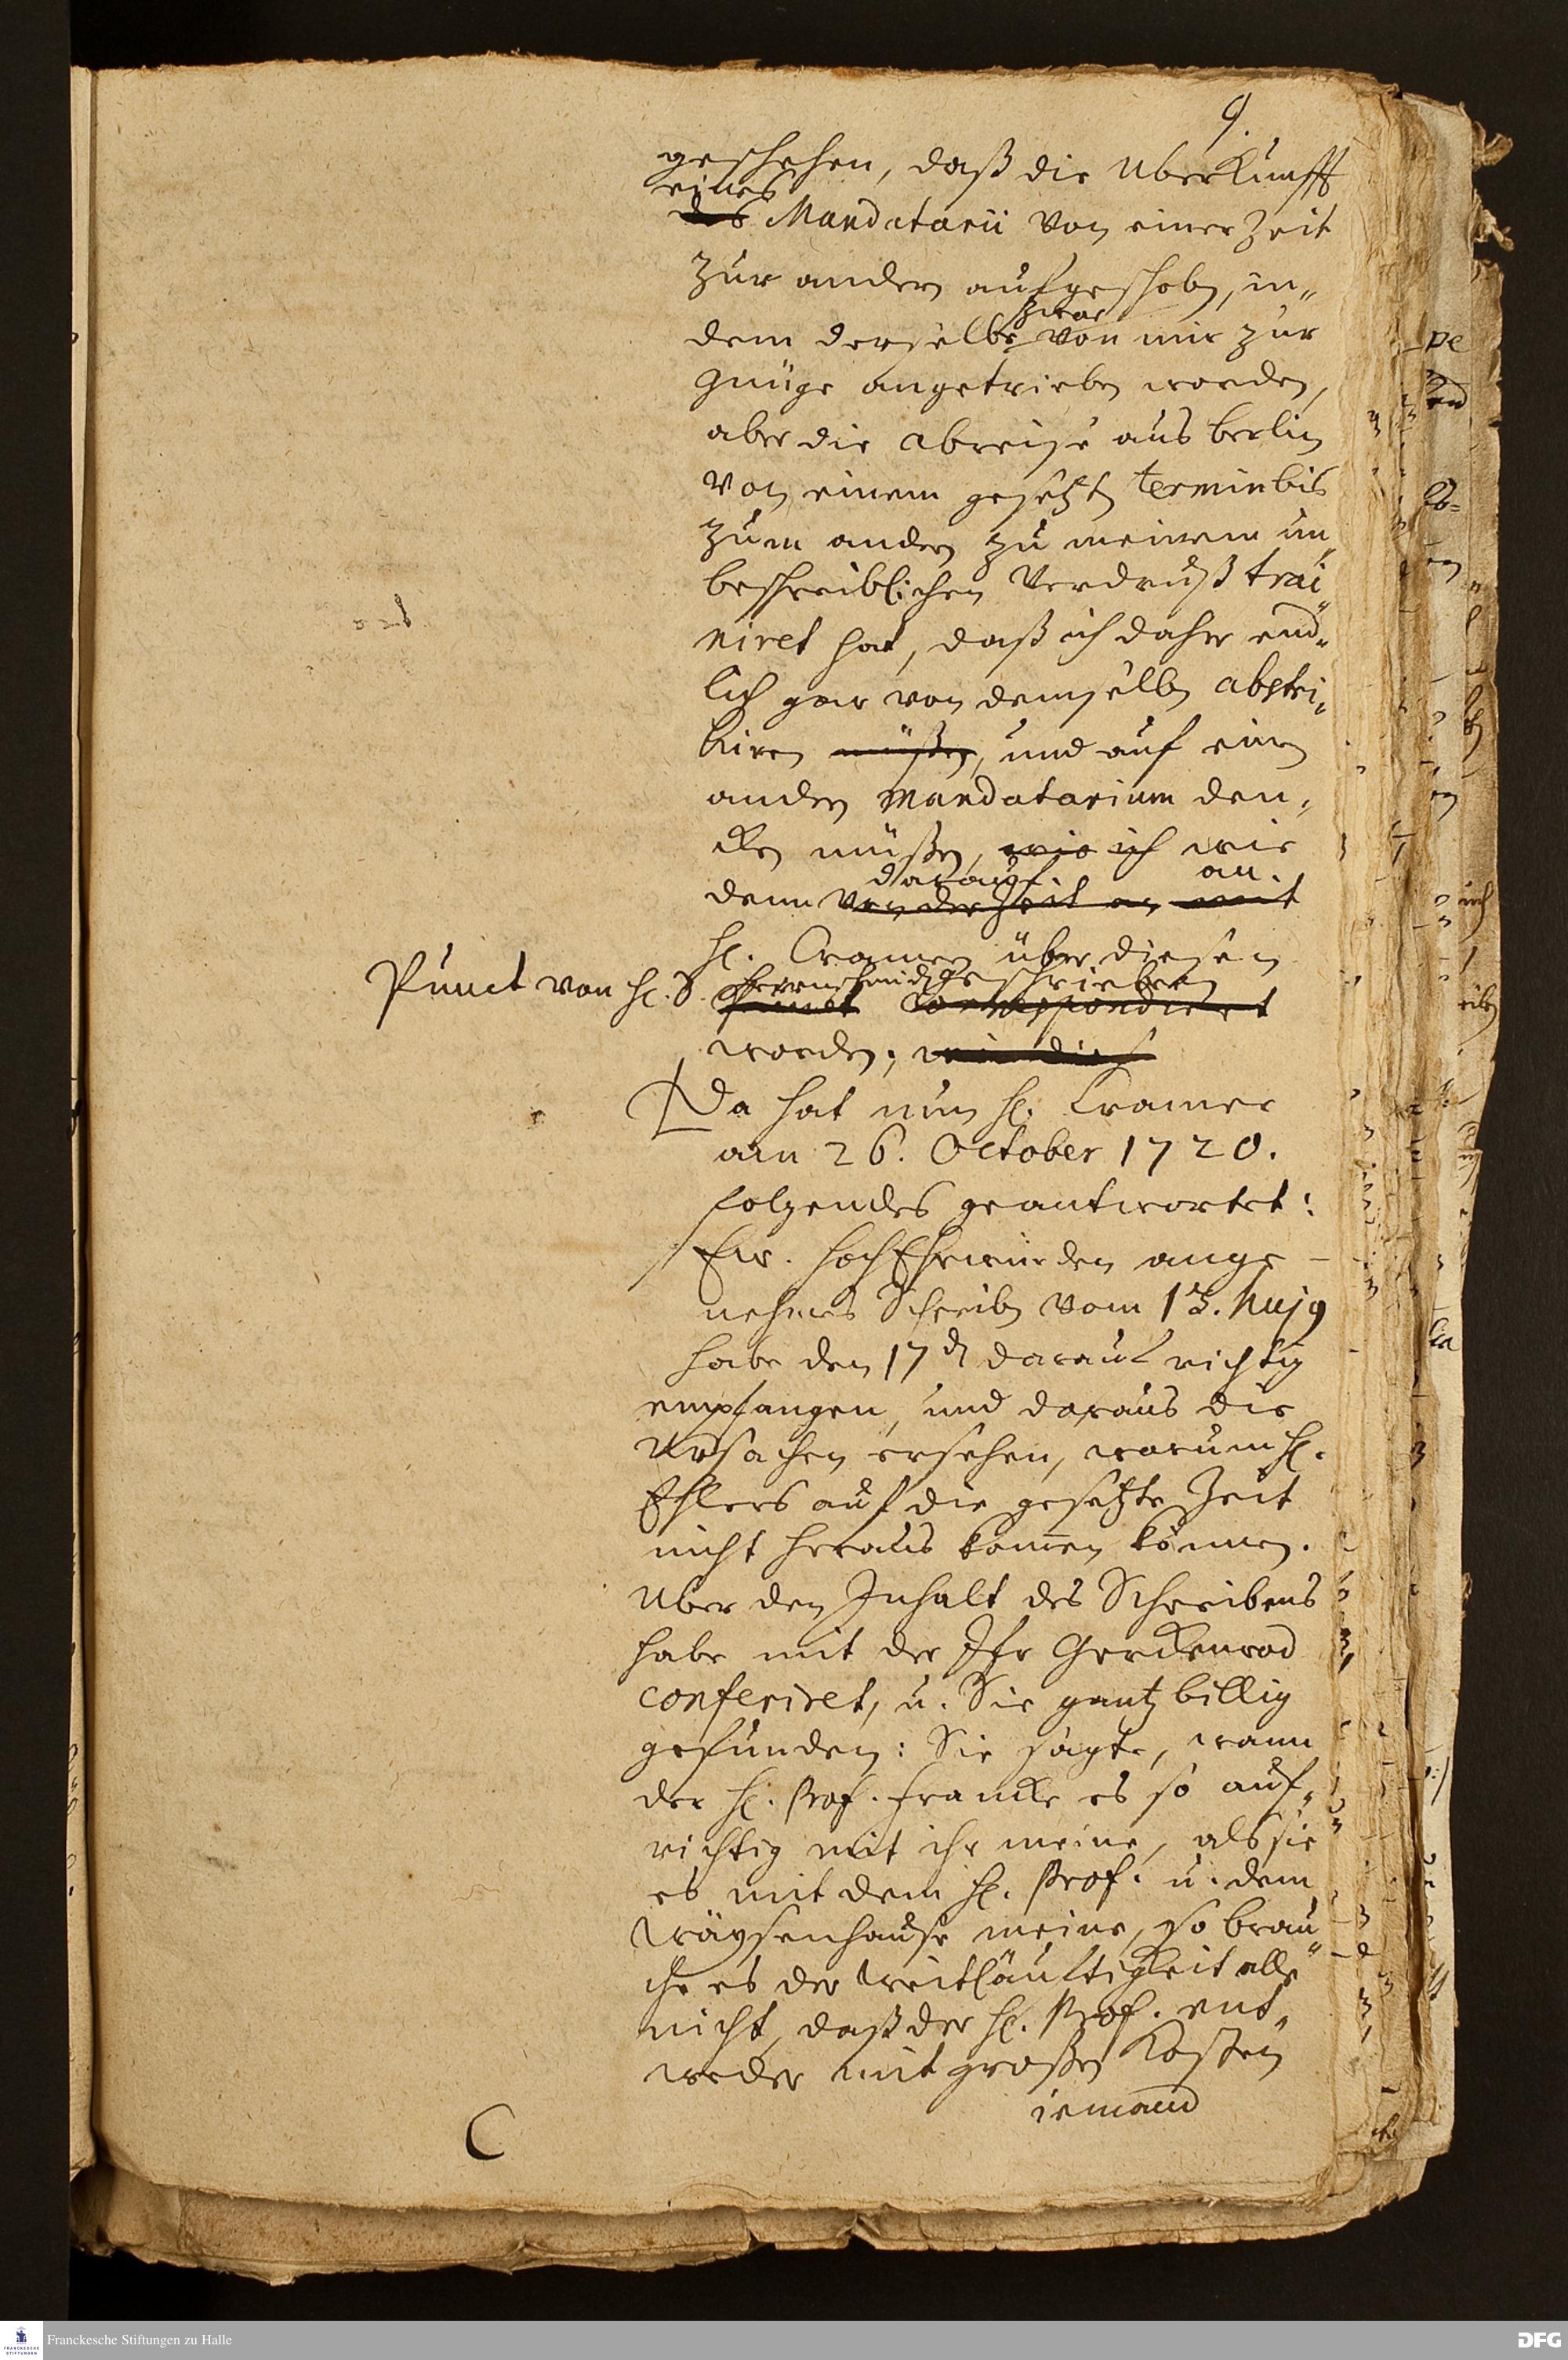 9.
geschehen, daß die Uberkunfft
eines
des Mandatarii von einer Zeit
zur andern aufgeschoben, in„
dem derselbe zwar von mir zur
Gnüge angetrieben worden,
aber die abreise aus Berlin
von einem gesetzten termin bis
zum andern zu meinem un„
beschreiblichen Verdruß trai„
niret hat, daß ich daher end„
lich gar von demselben abstri„
hiren müßen, und auf einen
andern Mandatarium den„
cken müßen, wie ich wie
darauf. an.
denn von der Zeit an mit
H. Cramern über diesen
Punct von H. D. Herrnschmid geschrieben
Punct Correspondiret
worden;
Da hat nun H. Cramer
am 26. October 1720.
folgendes geantwortet:
Ew. HochEhrwürden ange-
nehmes Schreiben vom 13. hujg
habe den 17ten darauf richtig
empfangen, und daraus die
Ursachen ersehen, warum H.
Ehlers auf die gesetzte Zeit
nicht heraus kommen können.
Uber den Inhalt des Schreibens
habe mit der Jfr Gerckenrod
conferiret, u. Sie gantz billig
gefunden: Sie sagte, wann
der H. Prof. Francke es so auf„
richtig mit ihr meine, als sie
es mit dem H. Prof. u. dem
Wäysenhause meine, so brau„
che es der Weitläuftigkeit alle
nicht, daß der H. Prof. ent„
weder mit großen Kosten
iemand
C
Franckesche Stiftungen zu Halle
DFG